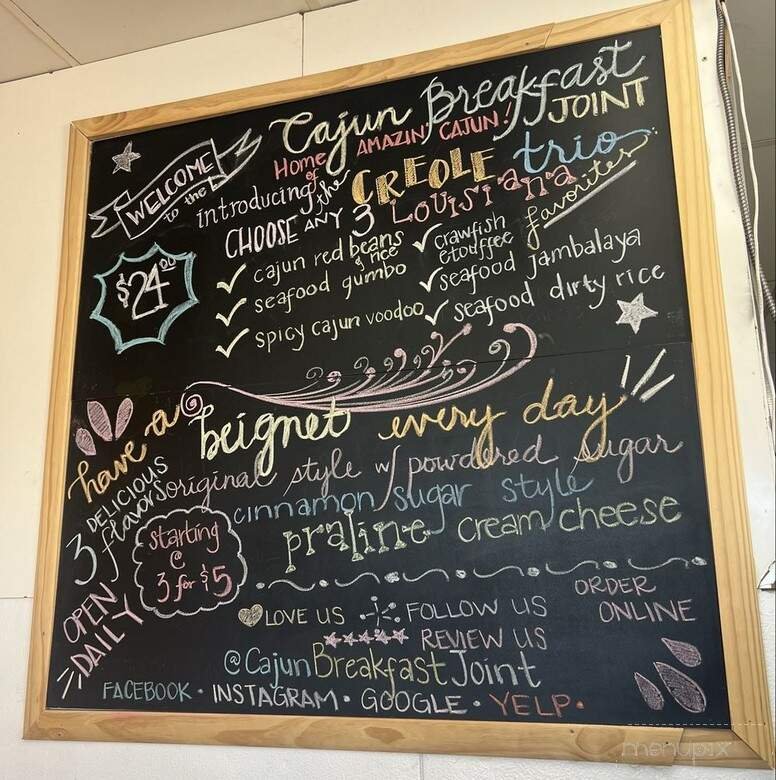 WELCOME
to the
Cajun Breakfast
JOINT
Home of AMAZIN' CAJUN!
introducing the CREOLE trio
CHOOSE ANY 3 LOUISIANA favorites
$24.00
✓ cajun red beans & rice
✓ seafood gumbo
✓ spicy cajun voodoo
✓ crawfish etouffee
✓ seafood Jambalaya
✓ seafood dirty rice
have a beignet every day
3 DELICIOUS flavors
original style w/ powdered sugar
cinnamon sugar style
praline cream cheese
starting
@
3 for $5
OPEN
DAILY
LOVE US FOLLOW US
REVIEW US
ORDER
ONLINE
@CajunBreakfastJoint
FACEBOOK • INSTAGRAM • GOOGLE • YELP •
menupix